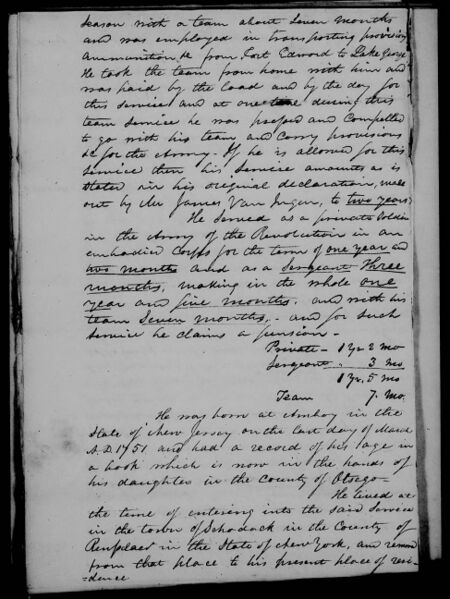 season with a team about Seven months
and was employed in transporting provision
ammunition &c from Fort Edward to Lake George
He took the team from home with him and
was paid by the load and by the day for
this service and at one time during this
team service he was pressed and Compelled
to go with his team and Carry provisions
&c for the Army. If he is allowed for this
service then his service amounts as is
stated in his original declaration, made
out by Mr James Van Ingen, to two years
He Served as a private Soldier
in the Army of the Revolution in an
embodied Corps for the term of one year and
two months and as a Sergeant Three
months, making in the whole one
year and five months. and with his
team Seven months,- and for such
Service he claims a pension-
Private - 1 yr 2 mo
Sergeant - 3 mo
1 yr. 5 mo
Team 7. mo.
He was born at Amboy in the
State of New Jersey on the last day of March
A.D. 1751 and had a record of his age in
a book which is now in the hands of
his daughter in the County of Otsego-
He lived at
the time of entering into the said Service
in the town of Schodack in the County of
Rensselaer in the State of New York, and
from that place to his present place of resi-
=dence